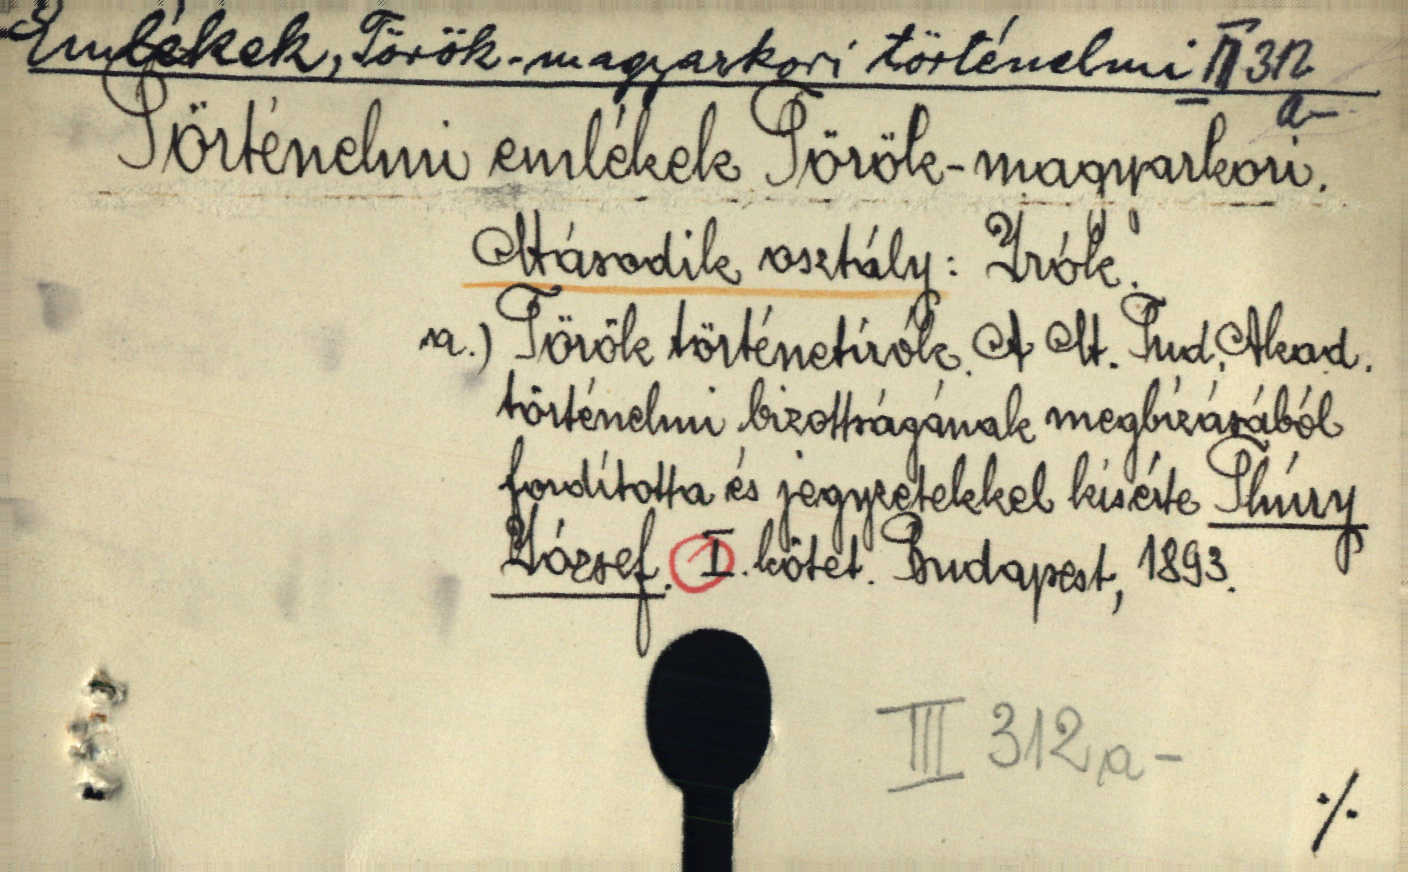 Emlékek, Török-magyarkori történelmi III 312
a-
Történelmi emlékek Török-magyarkori.
Második osztály: Írók.
a.) Török történetírók. A M. Tud. Akad.
történelmi bizottságának megbízásából
fordította és jegyzetekkel kisérte Thúry
József. I. kötet. Budapest, 1893.
III 312a-
./.